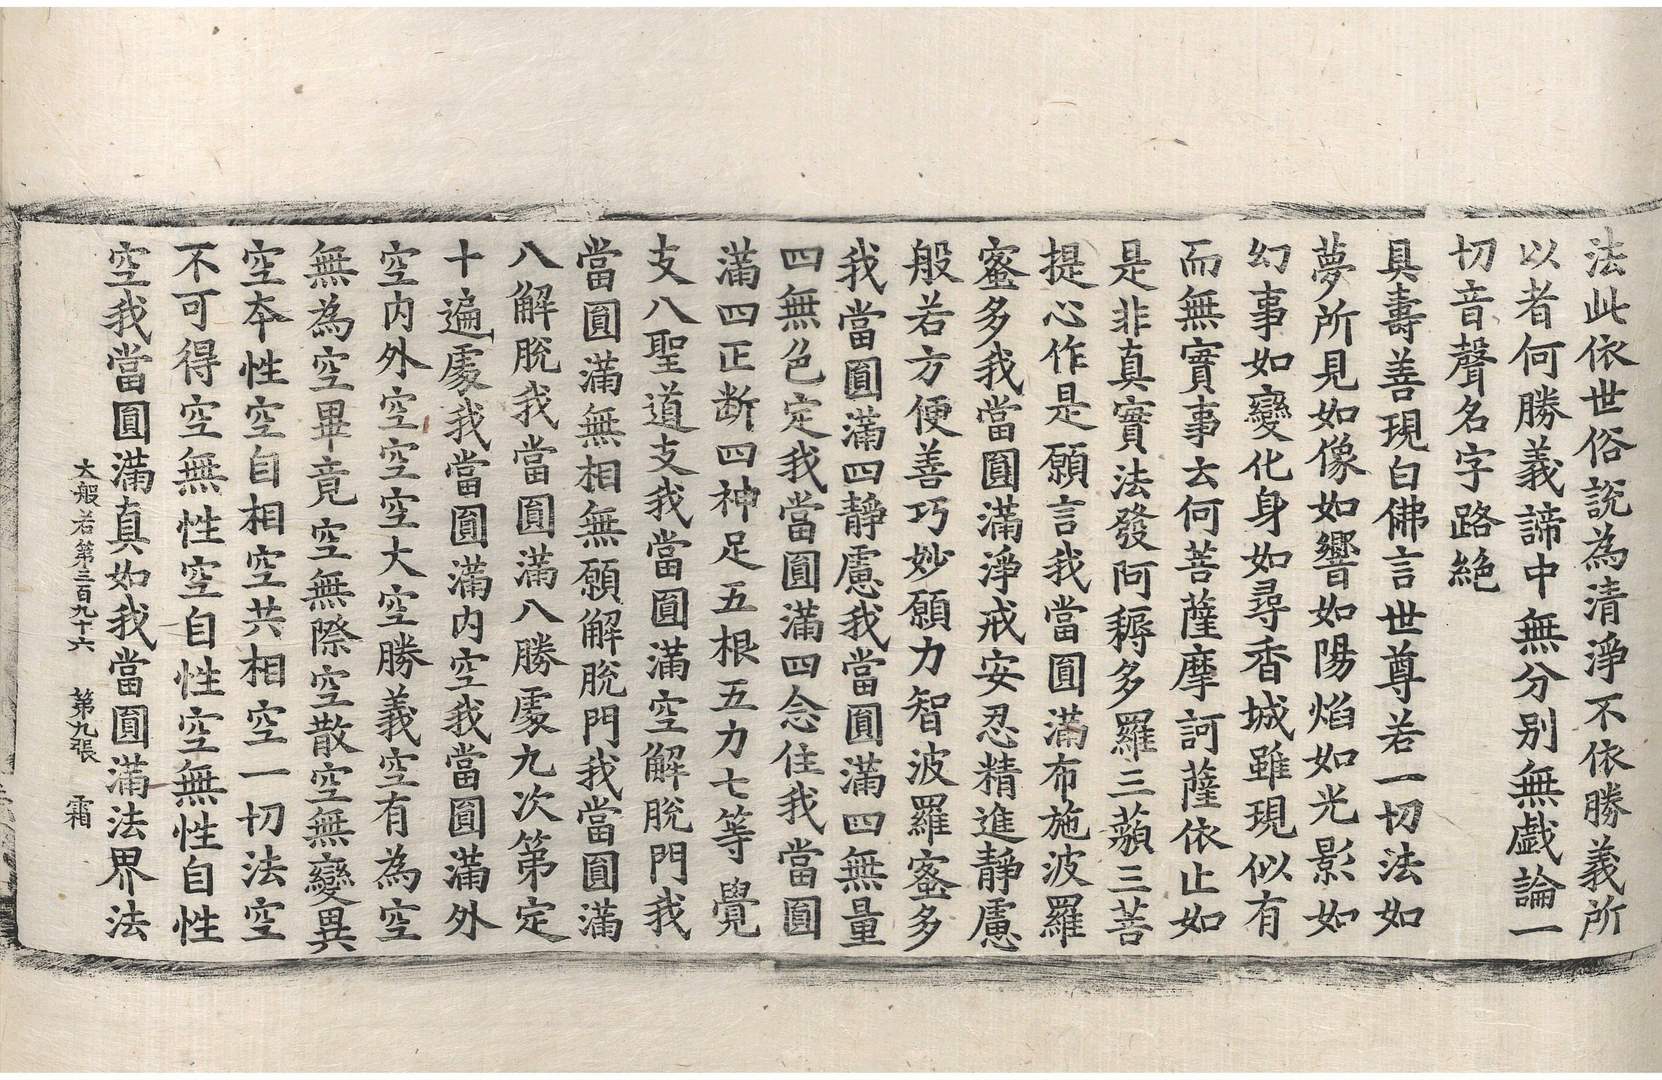 法此依世俗說為清淨不依勝義所
以者何勝義諦中無分别無戲論一
切音聲名字路絶
具壽善現白佛言世尊若一切法如
夢所見如像如響如陽焰如光影如
幻事如變化身如尋香城雖現似有
而無實事云何菩薩摩訶薩依止如
是非真實法發阿耨多羅三藐三菩
提心作是願言我當圓滿布施波羅
蜜多我當圓滿淨戒安忍精進靜慮
般若方便善巧妙願力智波羅蜜多
我當圓滿四靜慮我當圓滿四無量
四無色定我當圓滿四念住我當圓
滿四正断四神足五根五力七等覺
支八聖道支我當圓滿空解脫門我
當圓滿無相無願解脫門我當圓滿
八解脫我當圓滿八勝處九次第定
十遍處我當圓滿内空我當圓滿外
空内外空空空大空勝義空有為空
無為空畢竟空無際空散空無變異
空本性空自相空共相空一切法空
不可得空無性空自性空無性自性
空我當圓滿真如我當圓滿法界法
大般若第三百九十六　第九張　霜